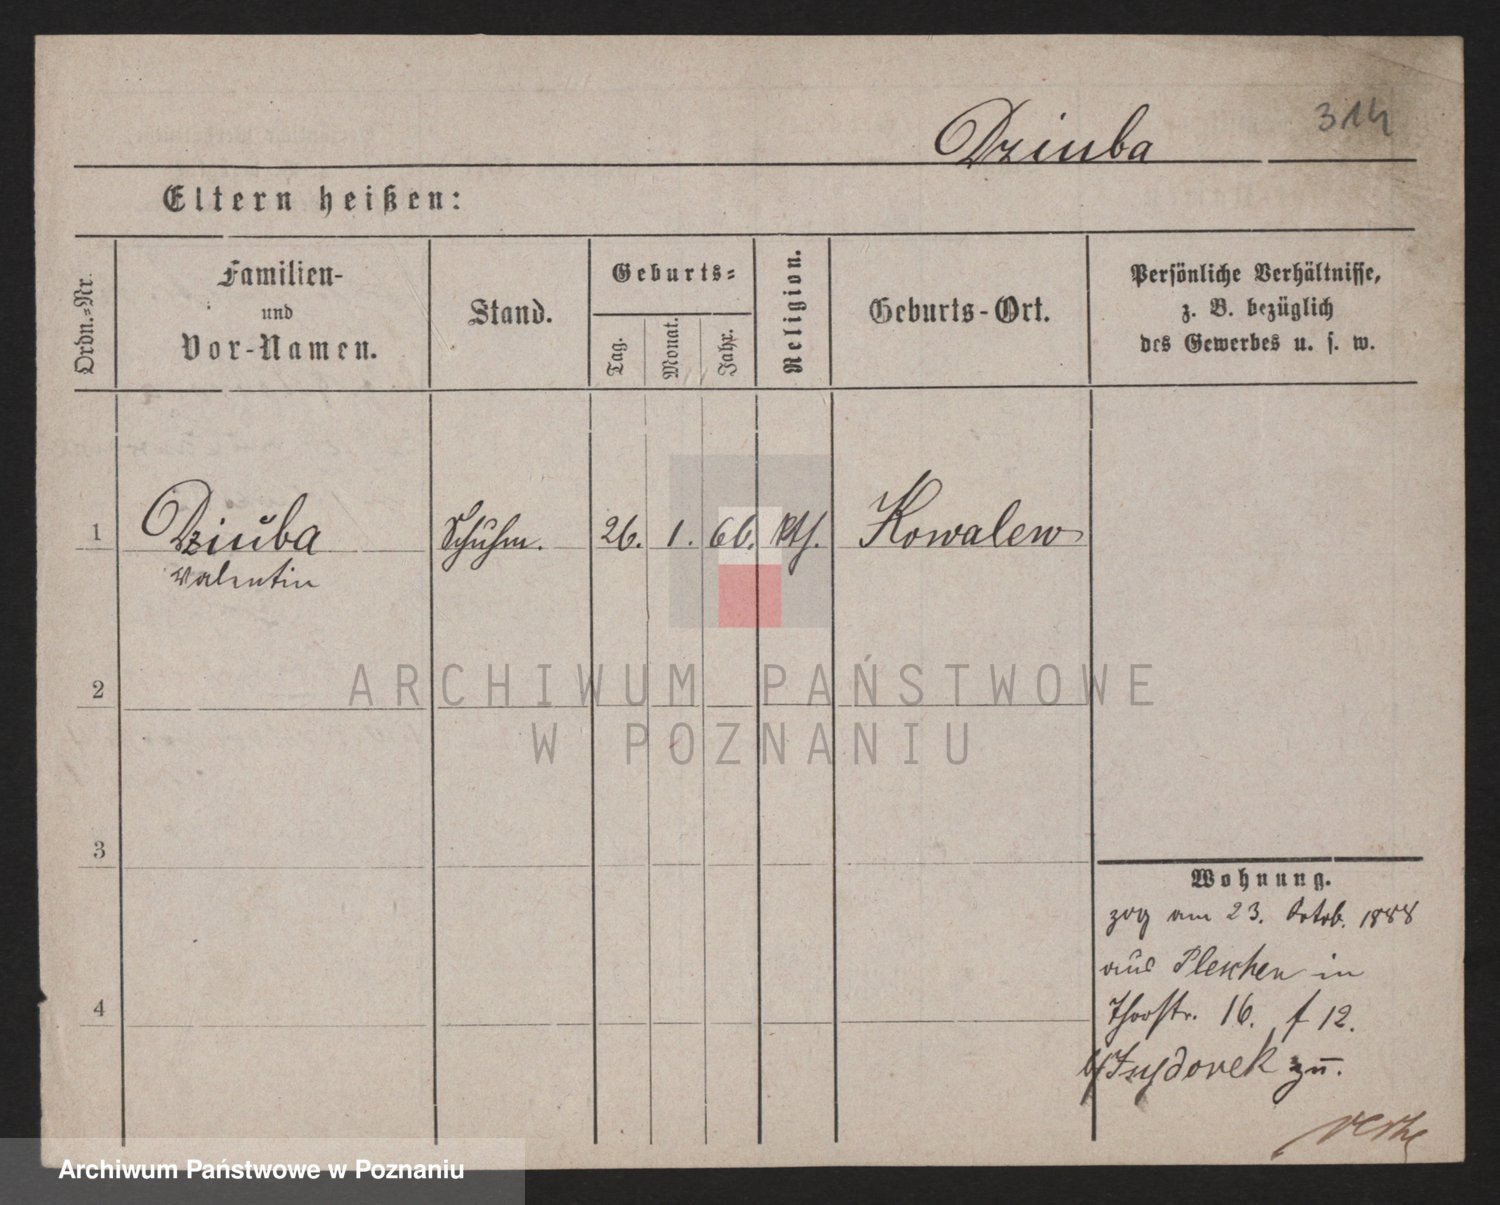 314
Dziuba
Eltern heißen:
Ordn.-Nr.
Familien-
und
Vor-Namen.
Stand.
Geburts-
Tag.
Monat.
Jahr.
Religion.
Geburts-Ort.
Persönliche Verhältnisse,
z. B. bezüglich
des Gewerbes u. s. w.
1 Dziuba Schuhm. 26. 1. 66. kth. Kowalew
Valentin
2
3
4
Wohnung.
zog am 23. Octob. 1888
aus Pleschen in
Thorstr. 16. f 12.
b/ zu.
ARCHIWUM PAŃSTWOWE
W POZNANIU
Archiwum Państwowe w Poznaniu